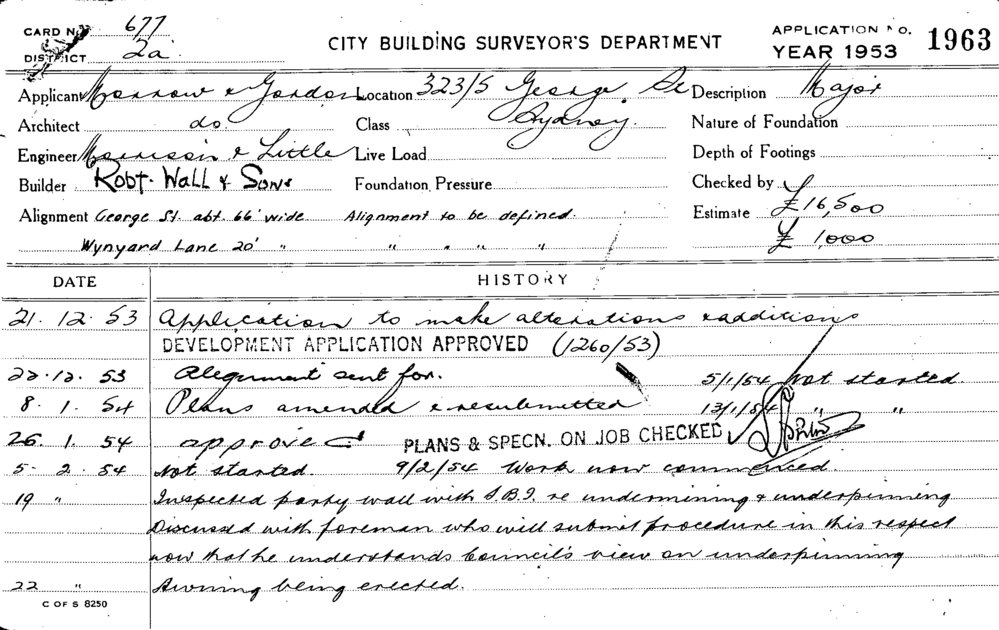 CARD No. 677
DISTRICT 2a
CITY BUILDING SURVEYOR'S DEPARTMENT
APPLICATION NO. 1963
YEAR 1953
Applicant Morrow & Gordon Location 323/5 George St Description Major
Architect do. Class Sydney. Nature of Foundation
Engineer Morrison & Little Live Load Depth of Footings
Builder Robt. Wall & Sons Foundation Pressure Checked by
Alignment George St. abt. 66' wide Alignment to be defined. Estimate £16,500
Wynyard Lane 20' " " " " " £ 1,000
DATE HISTORY
21. 12. 53 Application to make alterations & additions
DEVELOPMENT APPLICATION APPROVED (1260/53)
22. 12. 53 Alignment sent for. 5/1/54 Not started.
8. 1. 54 Plans amended & resubmitted 13/1/54 " "
26. 1. 54 approved PLANS & SPECN. ON JOB CHECKED
5. 2. 54 Not started. 9/2/54 Work now commenced.
19 " Inspected party wall with S.B.I. re undermining & underpinning
Discussed with foreman who will submit procedure in this respect
now that he understands Council's view on underpinning
22 " Awning being erected.
C OF S 8250